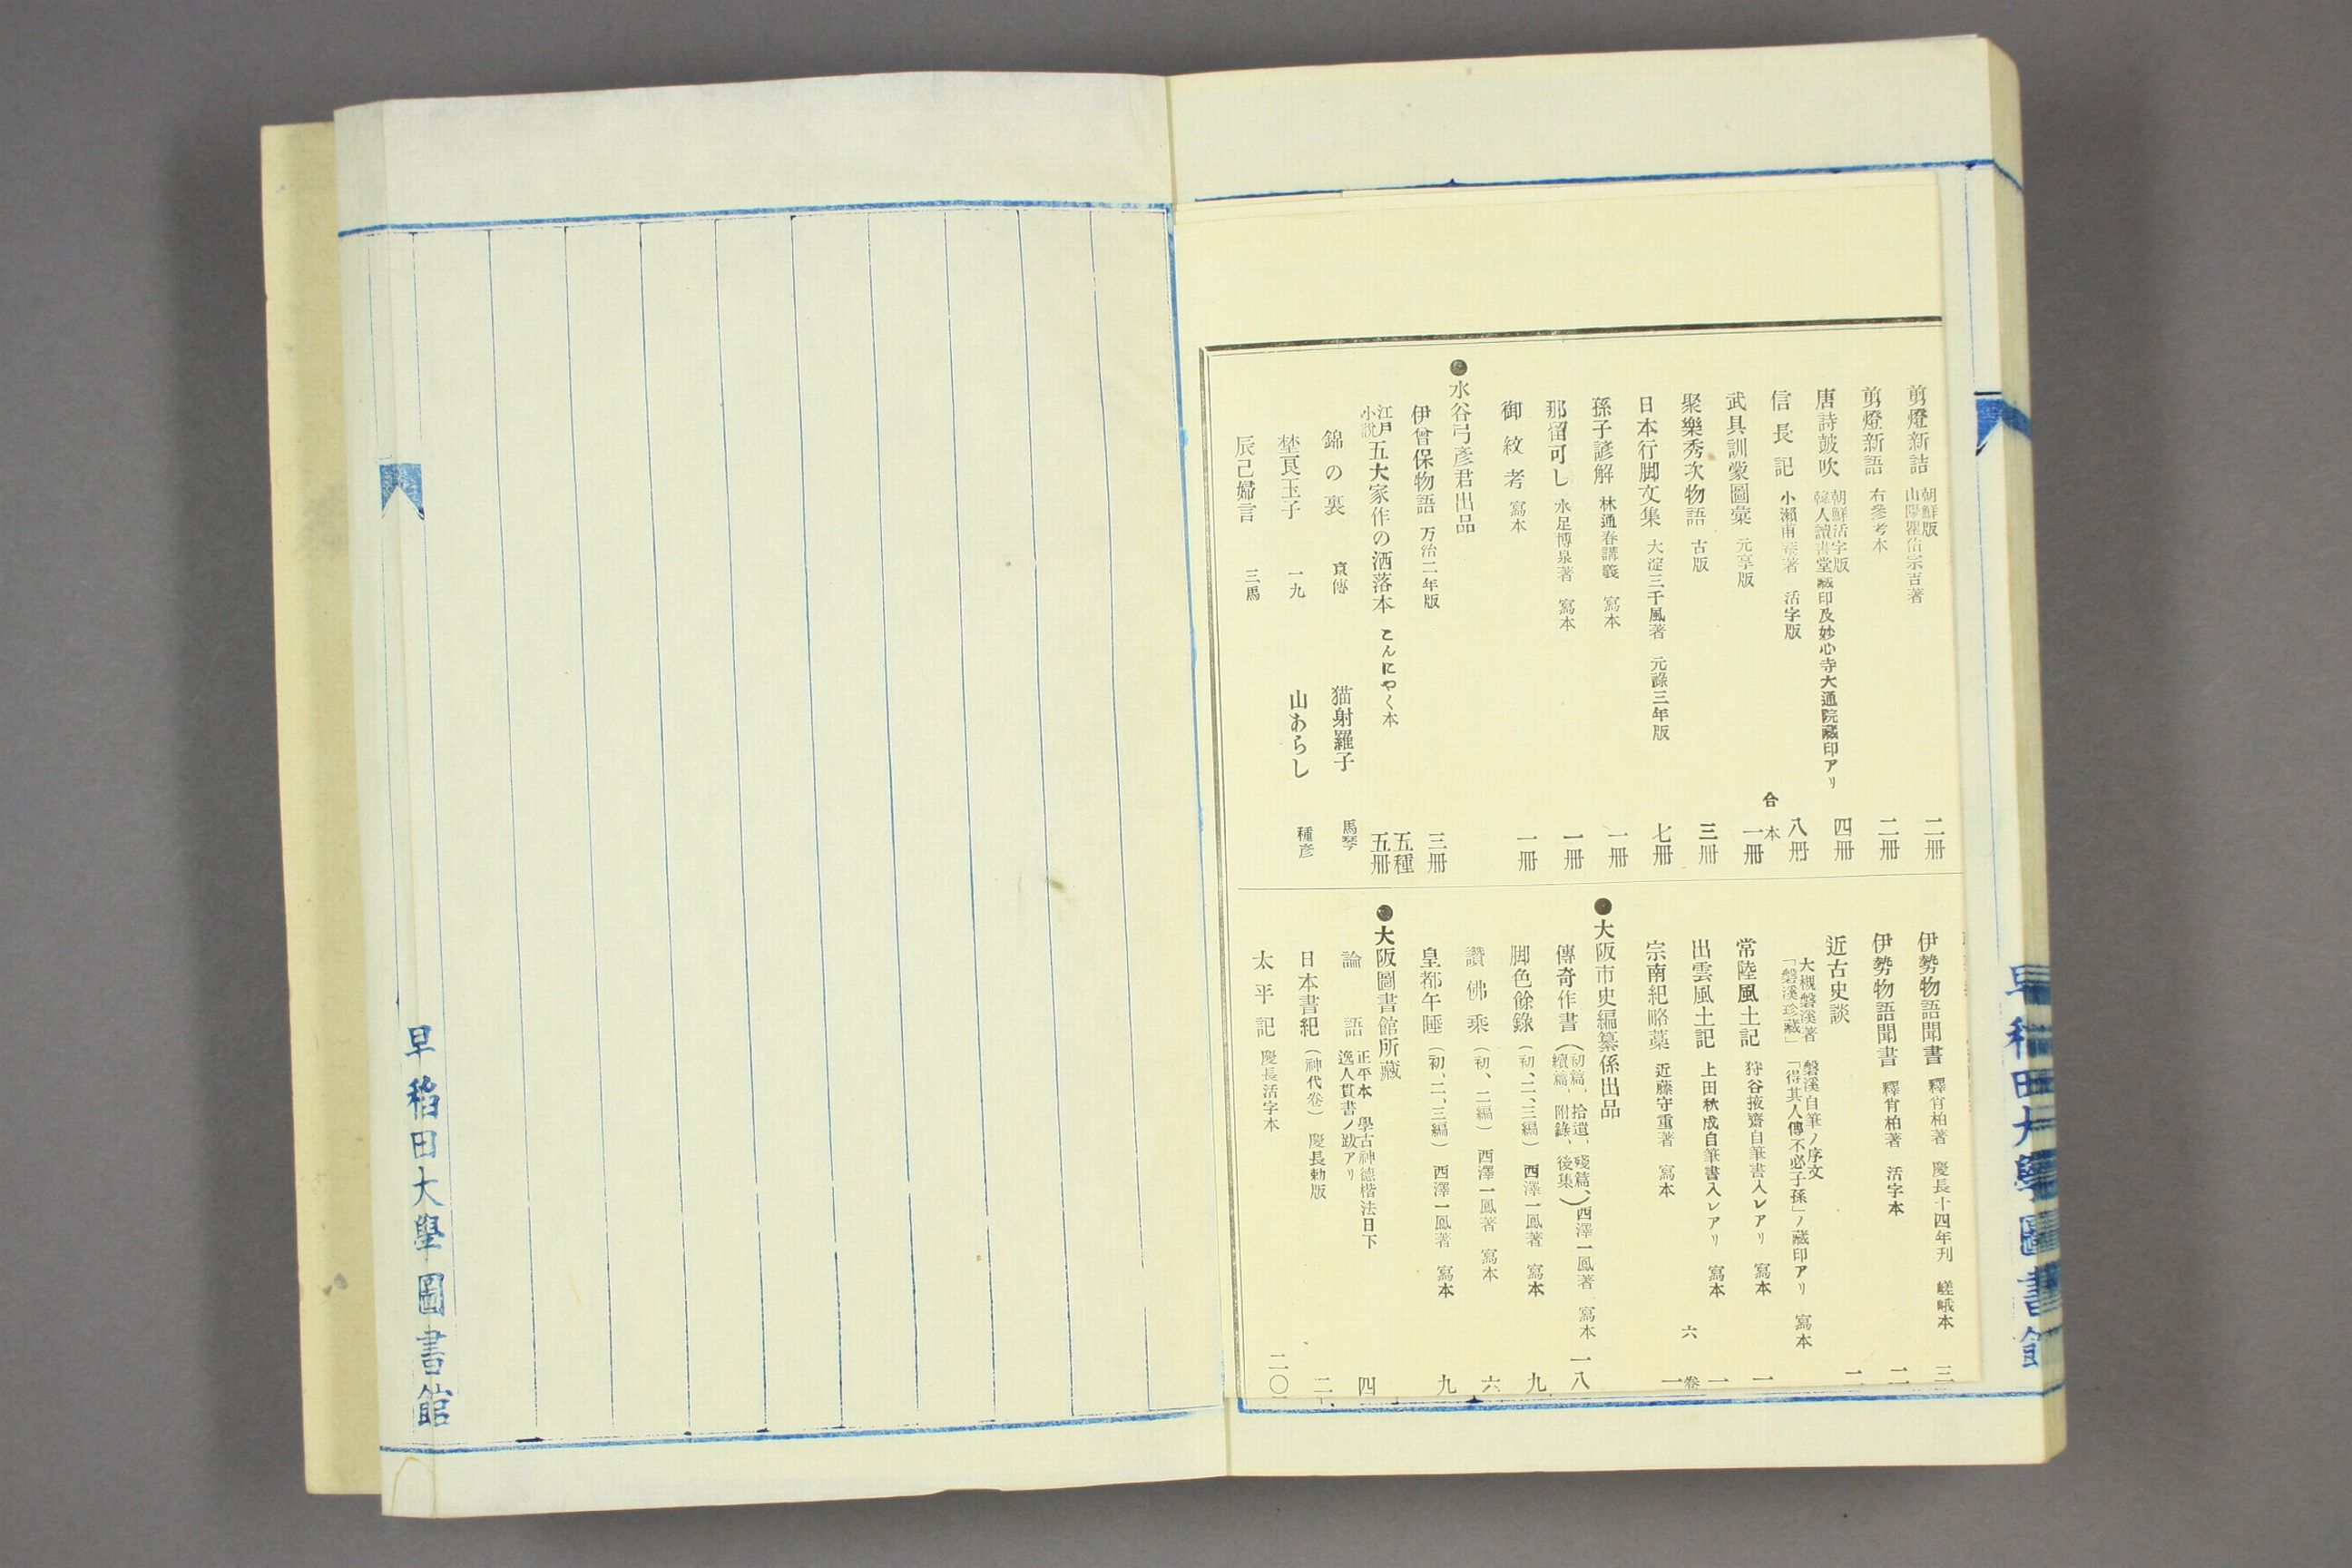 剪燈新話 朝鮮版 山陽瞿佑宗吉著 二冊
剪燈新語 右參考本 二冊
唐詩皷吹 朝鮮活字版 韓人讀書堂藏印及妙心寺大通院藏印アリ 四冊
信長記 小瀨甫菴著 活字版 八冊
武具訓蒙圖彙 元享版 合本 一冊
聚樂秀次物語 古版 三冊
日本行脚文集 大淀三千風著 元祿三年版 七冊
孫子諺解 林道春講義 寫本 一冊
那留可し 水足博泉著 寫本 一冊
御紋考 寫本 一冊
●水谷弓彥君出品
伊曾保物語 万治二年版 三冊
江戶小說五大家作の洒落本 こんにやく本 五種五冊
錦の裏 京傳 猫射羅子 馬琴
埜良玉子 一九 山あらし 種彥
辰己婦言 三馬
伊勢物語聞書 釋肖柏著 慶長十四年刊 嵯峨本 三
伊勢物語聞書 釋肖柏著 活字本 二
近古史談 二
大槻磐溪著 磐溪自筆ノ序文
「磐溪珍藏」「得其人傳不必子孫」ノ藏印アリ 寫本
常陸風土記 狩谷掖齋自筆書入レアリ 寫本 一
出雲風土記 上田秋成自筆書入レアリ 寫本 一
宗南紀略藁 近藤守重著 寫本 六卷 一
●大阪市史編纂係出品
傳奇作書(初篇、拾遺、殘篇、續篇、附錄、後集)西澤一鳳著 寫本 一八
脚色餘錄(初、二、三編)西澤一鳳著 寫本 九
讃佛乘(初、二編)西澤一鳳著 寫本 六
皇都午睡(初、二、三編)西澤一鳳著 寫本 九
●大阪圖書館所藏
論語 正平本 學古神德楷法日下逸人貫書ノ跋アリ 四
日本書紀(神代卷)慶長勅版 二
太平記 慶長活字本 二〇
早稻田大學圖書館
早稻田大學圖書館